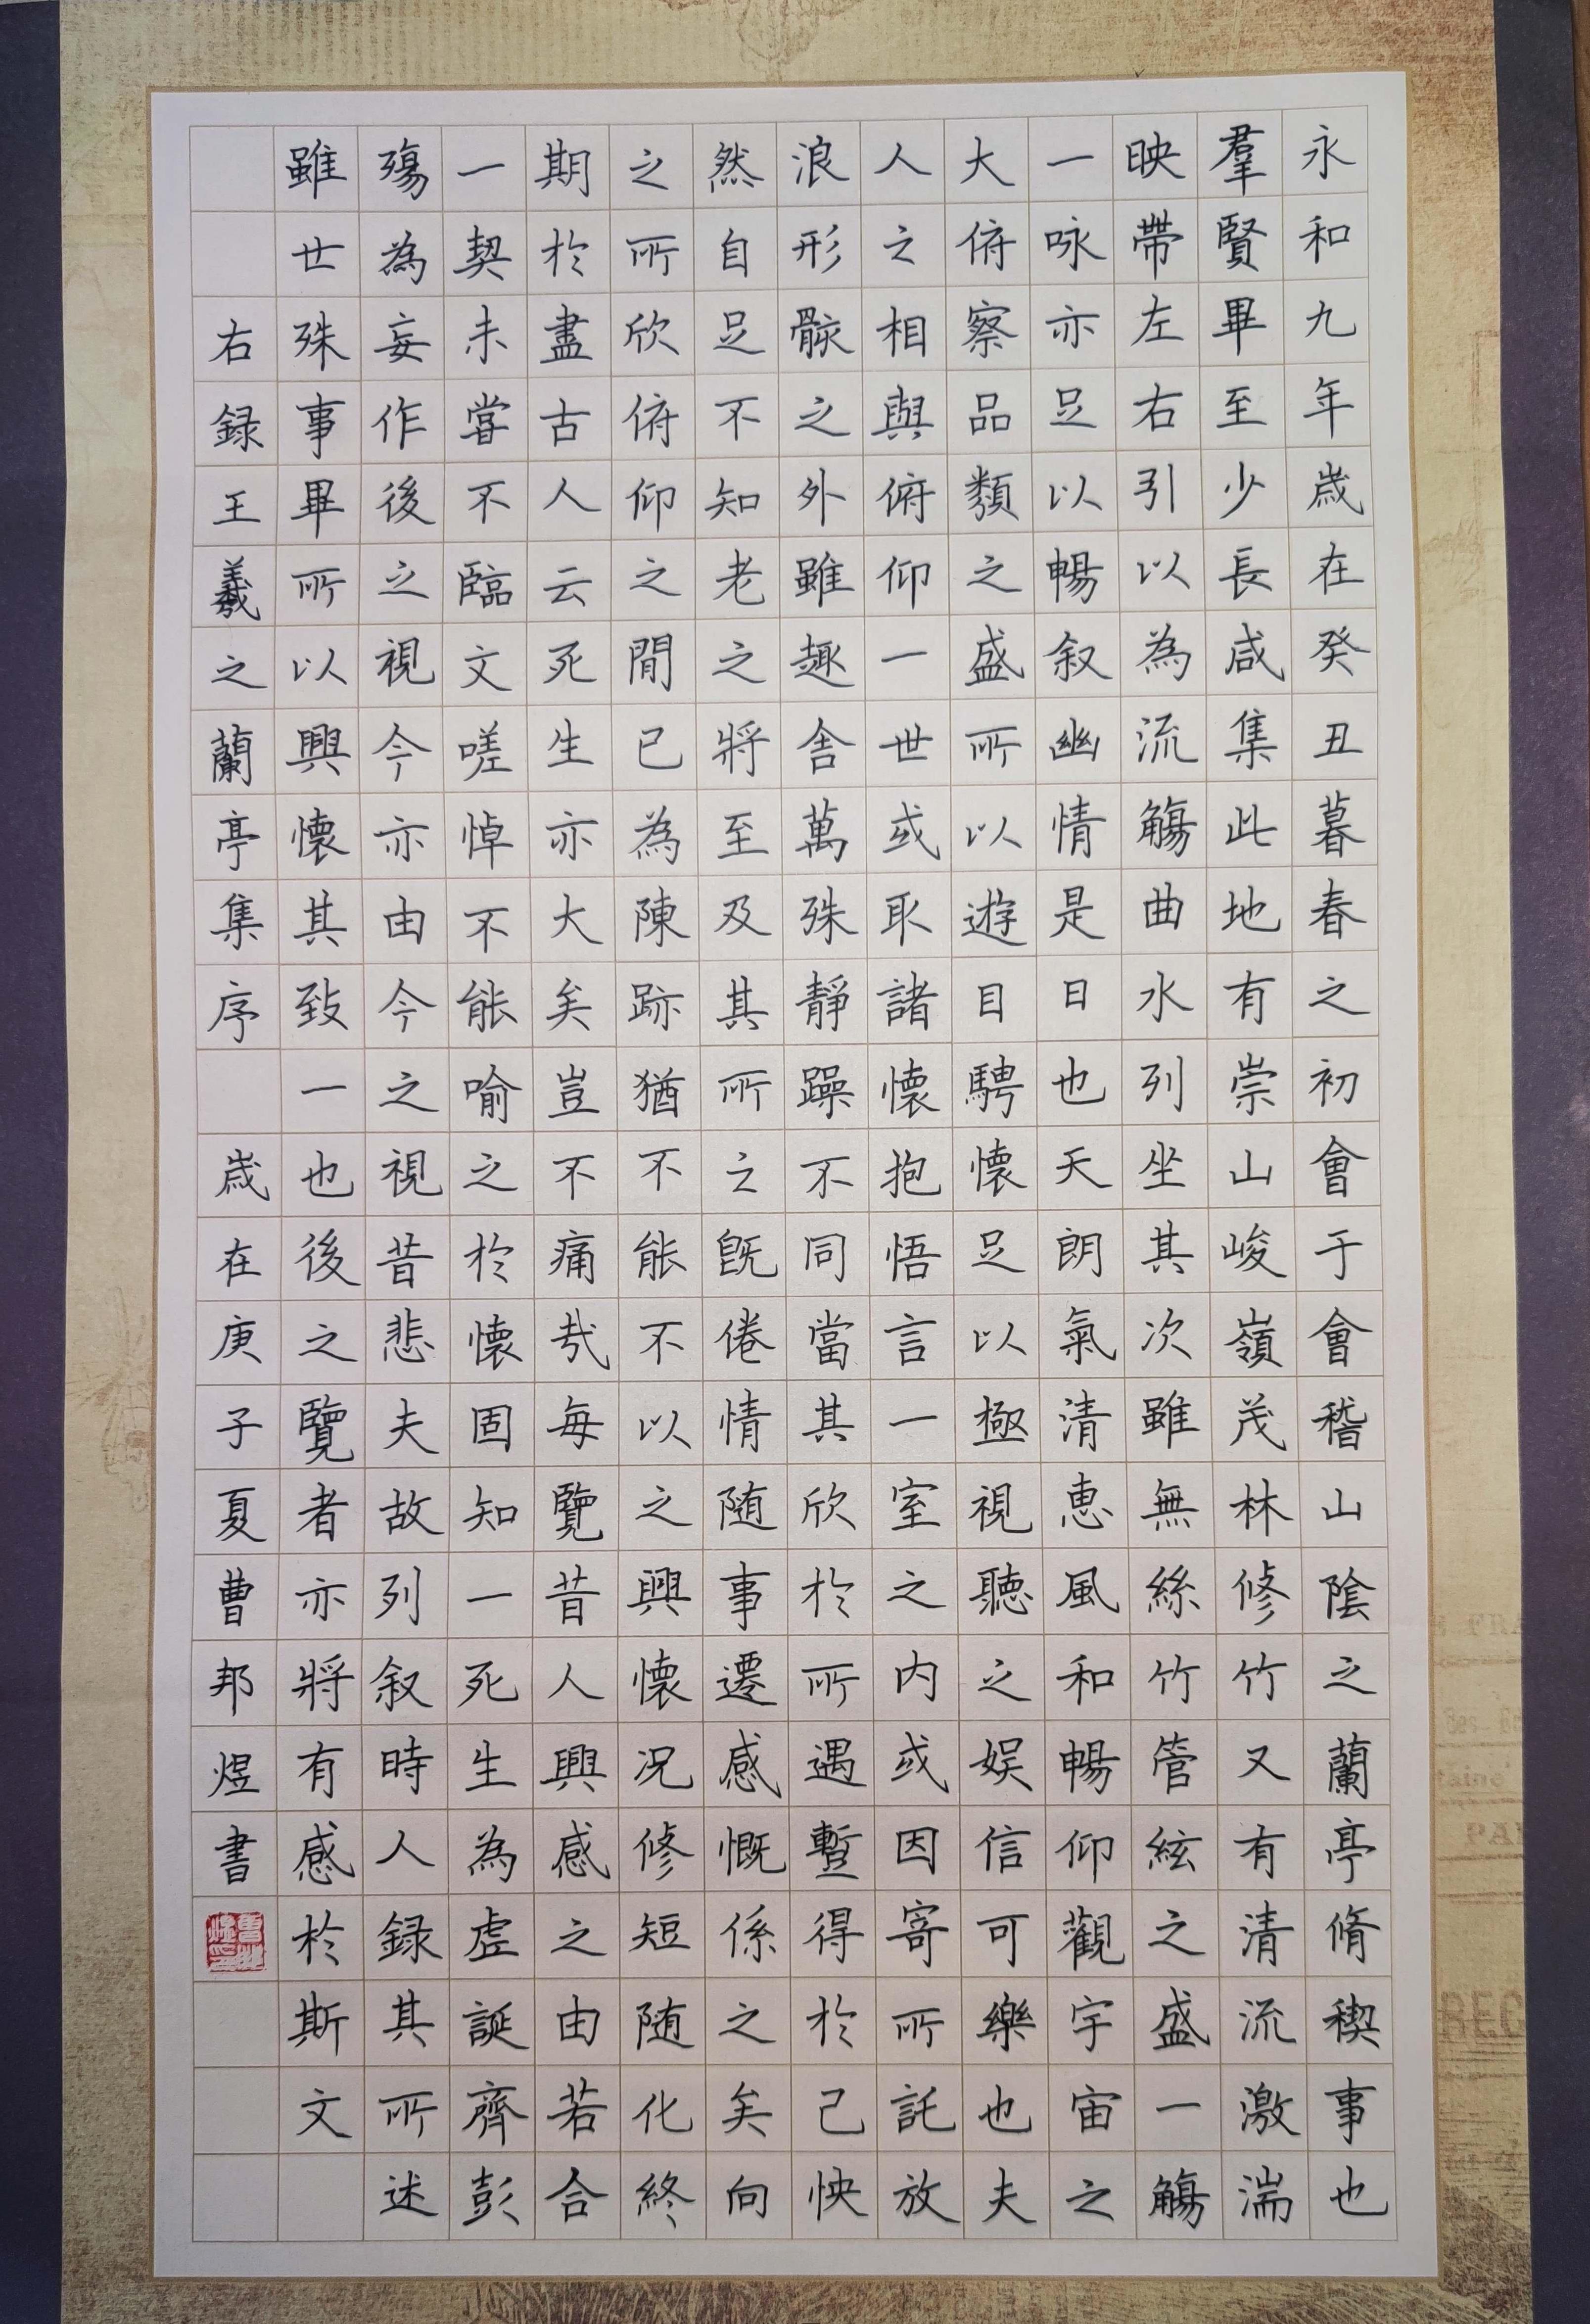 永和九年歲在癸丑暮春之初會于會稽山陰之蘭亭脩稧事也
羣賢畢至少長咸集此地有崇山峻嶺茂林修竹又有清流激湍
映帶左右引以為流觴曲水列坐其次雖無絲竹管絃之盛一觴
一咏亦足以暢叙幽情是日也天朗氣清恵風和暢仰觀宇宙之
大俯察品類之盛所以遊目騁懷足以極視聽之娱信可樂也夫
人之相與俯仰一世或取諸懷抱悟言一室之内或因寄所託放
浪形骸之外雖趣舍萬殊静躁不同當其欣於所遇蹔得於己怏
然自足不知老之將至及其所之既倦情随事遷感慨係之矣向
之所欣俯仰之間已為陳跡猶不能不以之興懷况修短随化終
期於盡古人云死生亦大矣豈不痛哉每覽昔人興感之由若合
一契未甞不臨文嗟悼不能喻之於懷固知一死生為虚誕齊彭
殤為妄作後之視今亦由今之視昔悲夫故列叙時人録其所述
雖世殊事畢所以興懷其致一也後之覽者亦將有感於斯文
右録王羲之蘭亭集序 歲在庚子夏曹邦煜書